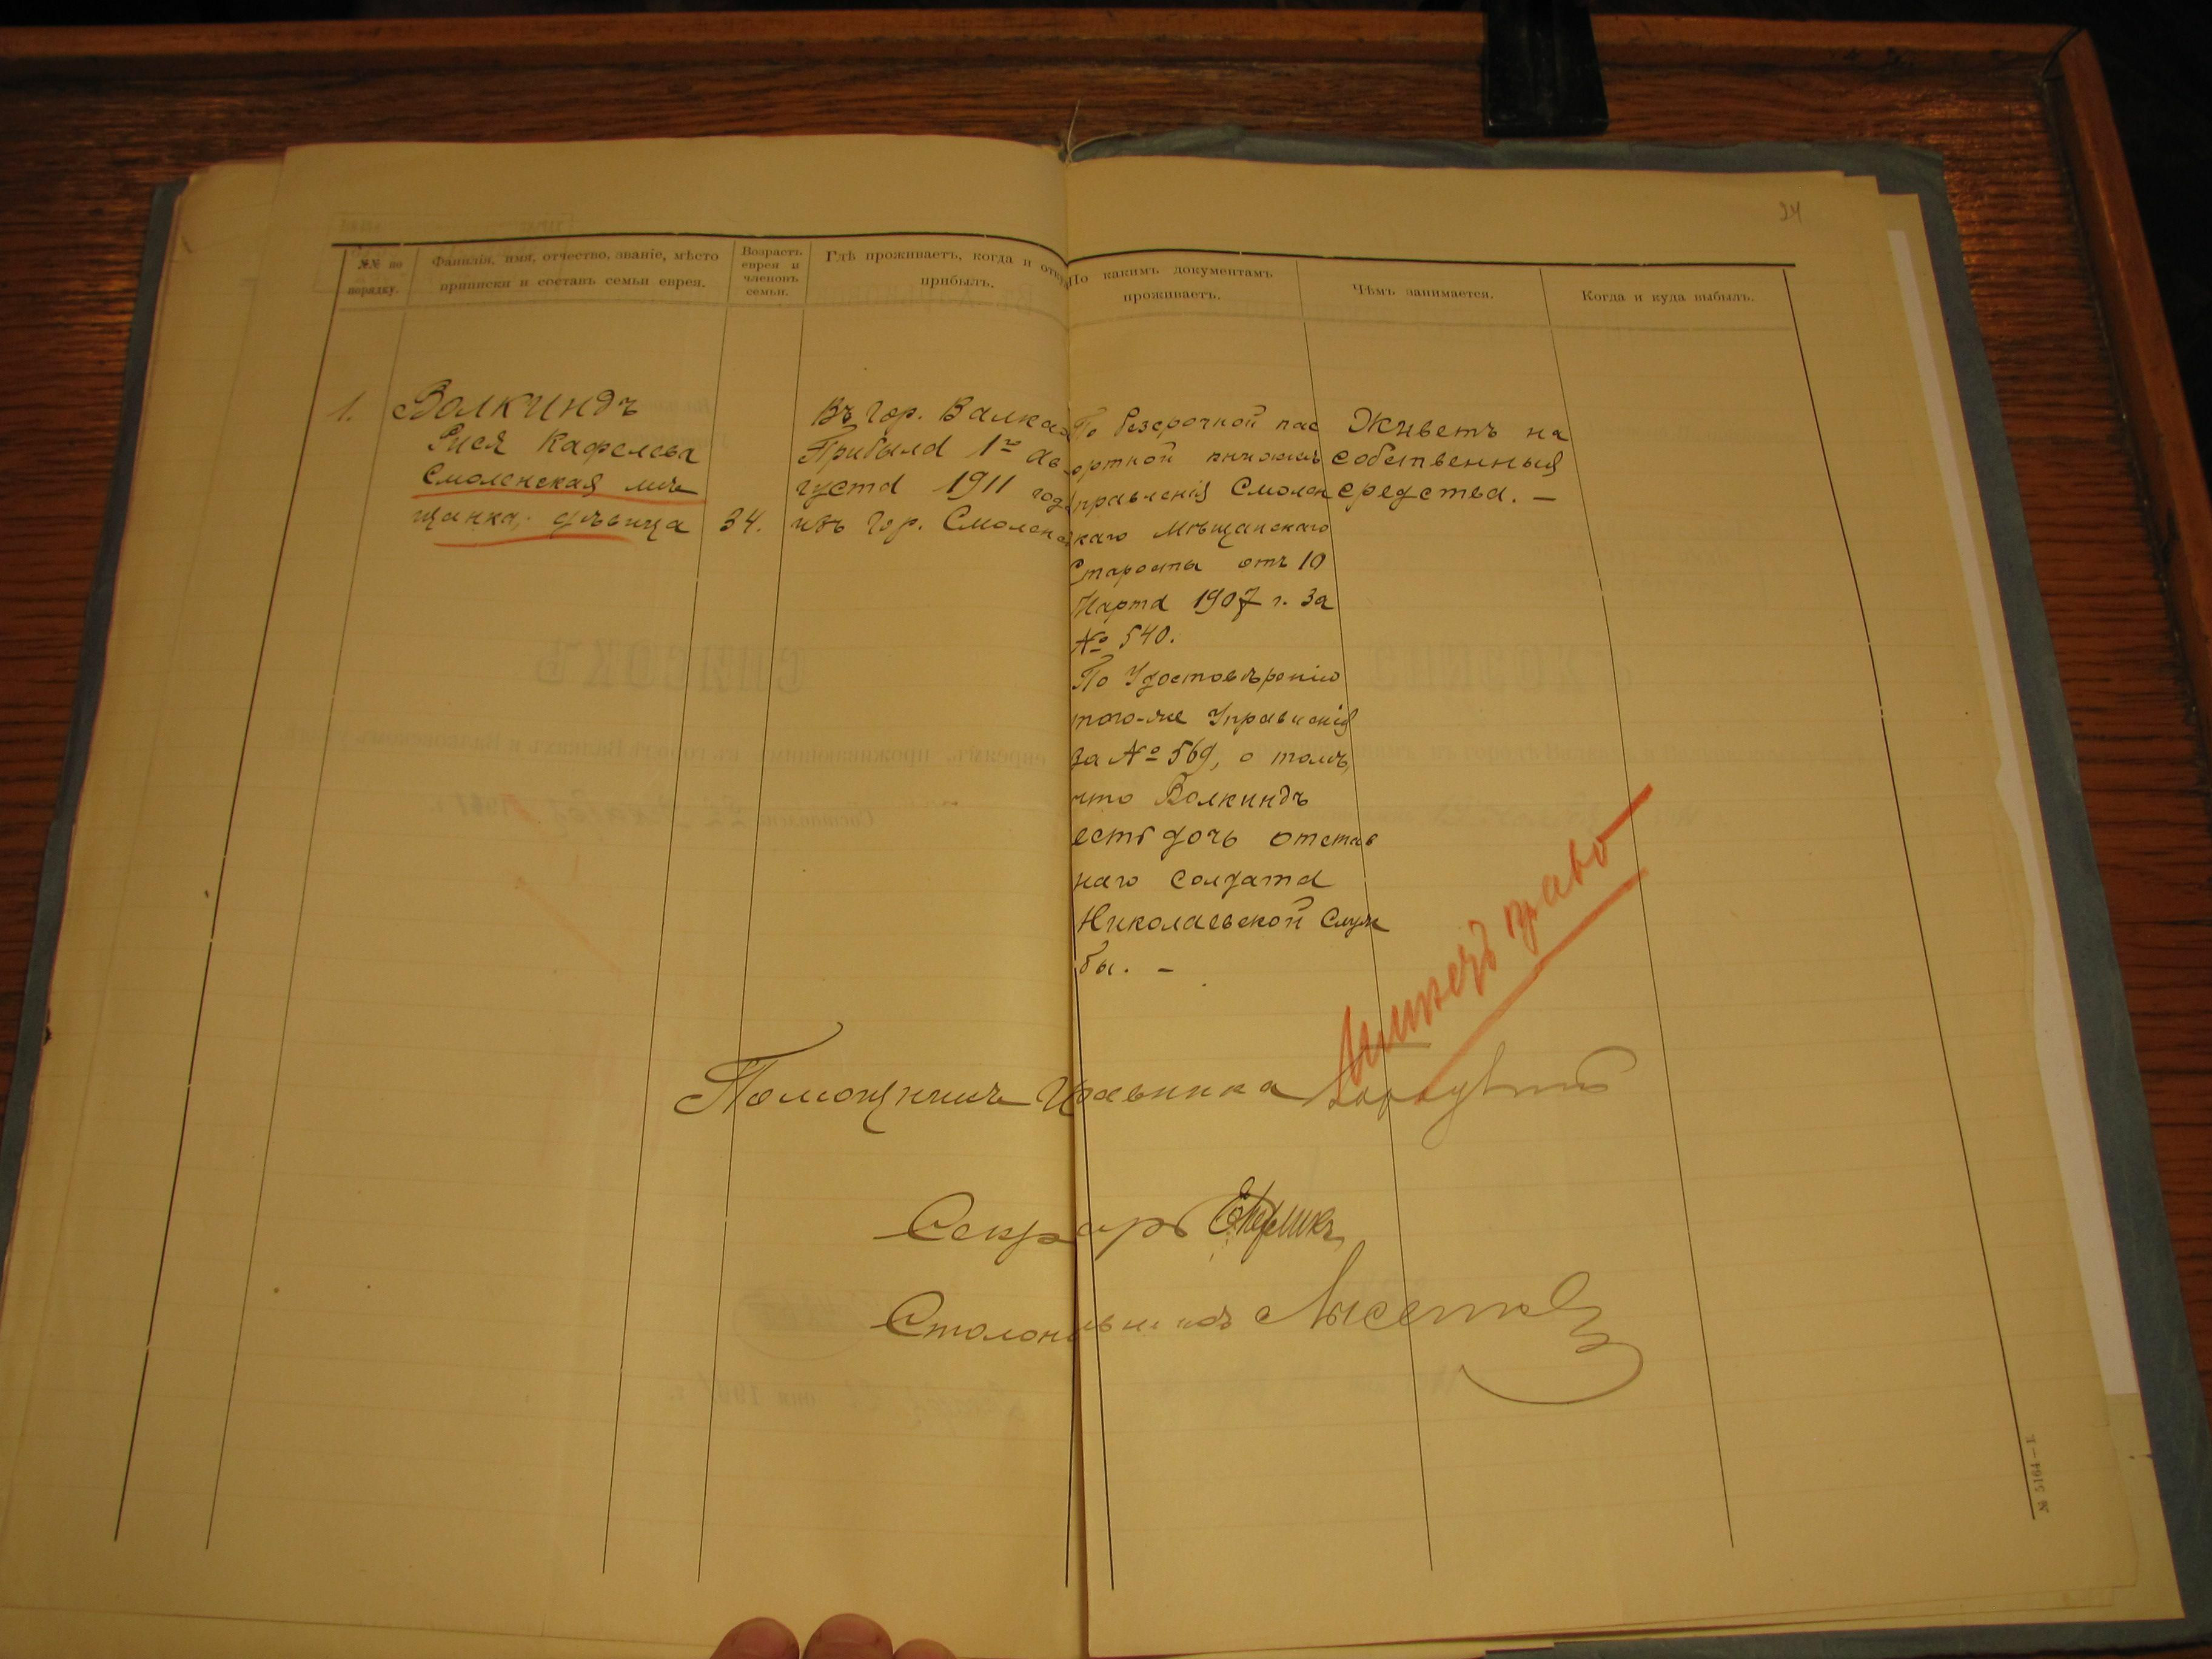 24
№№ по порядку.
Фамилія, имя, отчество, званіе, мѣсто
приписки и составъ семьи еврея.
Возрастъ
еврея и
членовъ
семьи.
Гдѣ проживаетъ, когда и откуда
прибылъ.
По какимъ документамъ
проживаетъ.
Чѣмъ занимается.
Когда и куда выбылъ.
1.
Волкиндъ
Рися
Смоленская мѣ
щанка, дѣвица
34.
Въ гор. Валках
Прибыла 1го ав
густа 1911 года
изъ гор. Смоленс
По безсрочной пас
портной книжкѣ
управленія Смолен
скаго Мѣщанскаго
Старосты отъ 10
Марта 1907 г. за
№ 540.
По Удостовѣренію
того-же Управленія
за № 569, о томъ,
что Волкиндъ
есть дочь отстав
наго солдата
Николаевской служ
бы. –
Живетъ на
собственныя
средства. –
имѣетъ право
Помощникъ Исправника
Секретарь
Столоначальникъ
№ 5164—1.